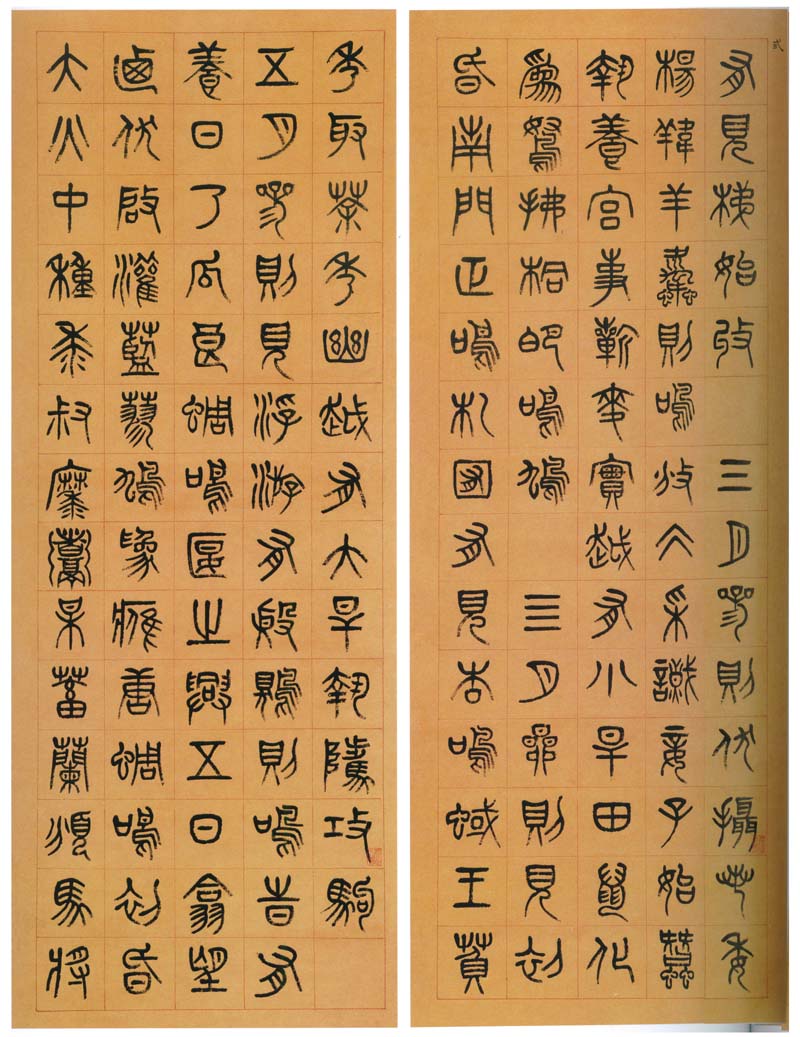 弍
有見梯始收三月參則伏攝桑委
楊䍷羊螜則鳴攽仌采識妾子始蠶
執養宮事蘄麥實越有小旱田鼠化
爲鴽拂桐皅鳴鳩三月昴則見初
昏南門正鳴札國有見杏鳴蜮王萯
秀取荼秀幽越有大旱執騭攻駒
五月參則見浮游有殷鴂則鳴時有
養日乃瓜良蜩鳴匽之興五日翕望
卥伏啟灌藍蓼鳩爲鷹唐蜩鳴初昏
大火中種黍叔糜煮某蓄蘭頒馬將